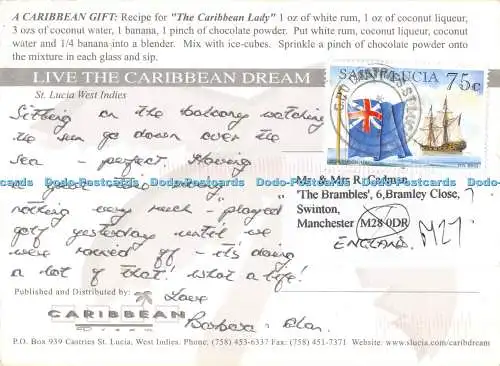 A CARIBBEAN GIFT: Recipe for "The Caribbean Lady" 1 oz of white rum, 1 oz of coconut liqueur,
3 ozs of coconut water, 1 banana, 1 pinch of chocolate powder. Put white rum, coconut liqueur, coconut
water and 1/4 banana into a blender. Mix with ice-cubes. Sprinkle a pinch of chocolate powder onto
the mixture in each glass and sip.
LIVE THE CARIBBEAN DREAM
St. Lucia West Indies
SAINT LUCIA 75c
Sitting on the balcony watching
the sun go down over the
sea - perfect. Having
nothing very much - played
golf yesterday until we
were rained off - it's doing
a lot of that! What a life!
Love
Barbara & Alan.
Dodo-Postcards Dodo-Postcards Dodo-Postcards Dodo-Postcards Dodo-Postcards
Mr. & Mrs R.
'The Brambles', 6, Bramley Close,
Swinton,
Manchester M28 0DR
ENGLAND. M27
Published and Distributed by:
CARIBBEAN
P.O. Box 939 Castries St. Lucia, West Indies. Phone: (758) 453-6337 Fax: (758) 451-7371 Website: www.slucia.com/caribdream